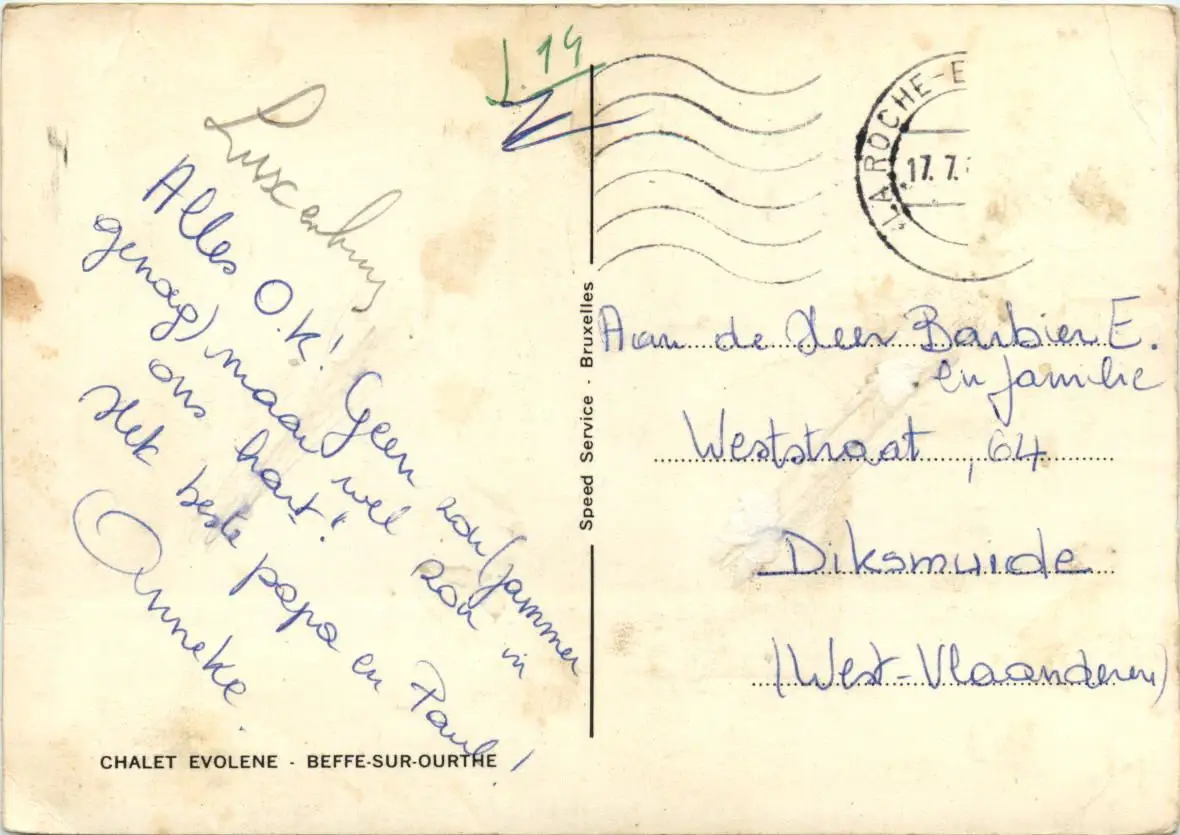 L. 14
Luxenburg
Alles O.K! Geen zon (jammer
genoeg) maar wel zon in
ons hart!
Het beste papa en Paul!
Anneke.
CHALET EVOLENE - BEFFE-SUR-OURTHE
Speed Service - Bruxelles
LA ROCHE-E
17. 7.
Aan de Heer Barbier E.
en familie
Weststraat, 64
Diksmuide
(West-Vlaanderen)